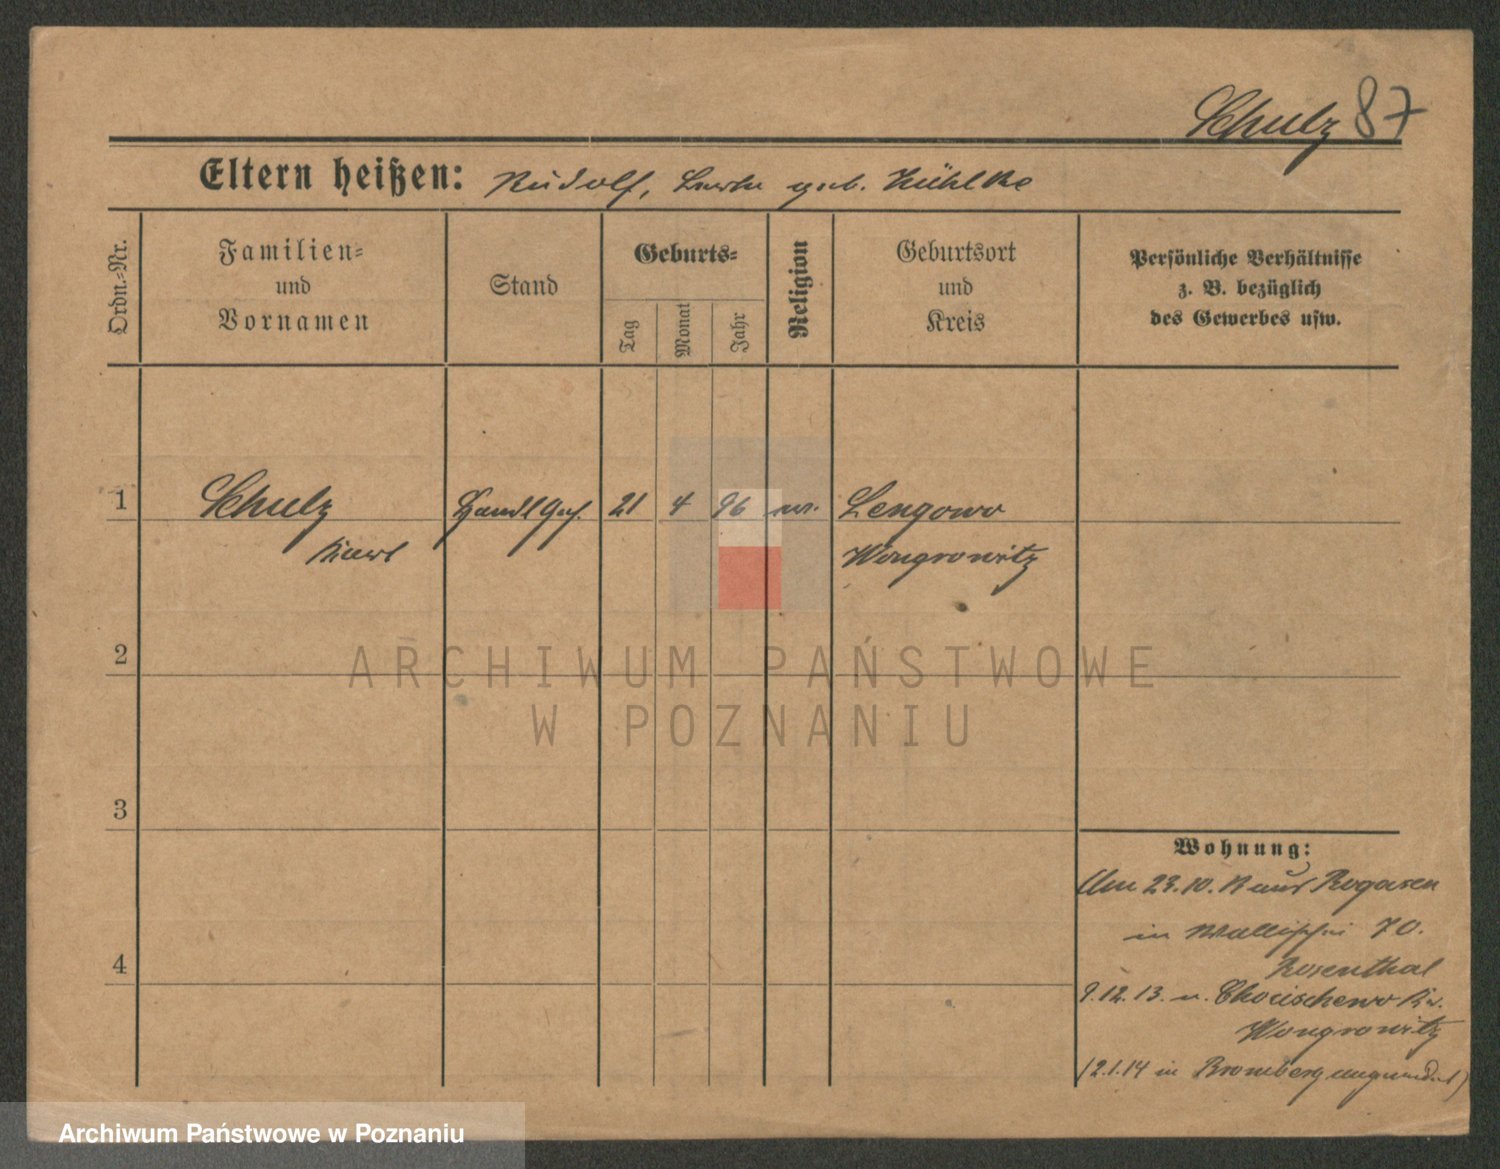 Schulz 87
Eltern heißen: Rudolf, geb. Kühlke
Ordn.-Nr.
Familien-
und
Vornamen
Stand
Geburts-
Tag
Monat
Jahr
Religion
Geburtsort
und
Kreis
Persönliche Verhältnisse
z. B. bezüglich
des Gewerbes usw.
1 Schulz Handl Geh. 21 4 96 ev. Lengowo
Kurt Wongrowitz
2
ARCHIWUM PAŃSTWOWE
W POZNANIU
3
Wohnung:
Am 23.10. aus Rogasen
in Wallischei 70.
Rosenthal
4
9.12.13. n. Kr.
Wongrowitz
(2.1.14 in Bromberg angemeldet)
Archiwum Państwowe w Poznaniu